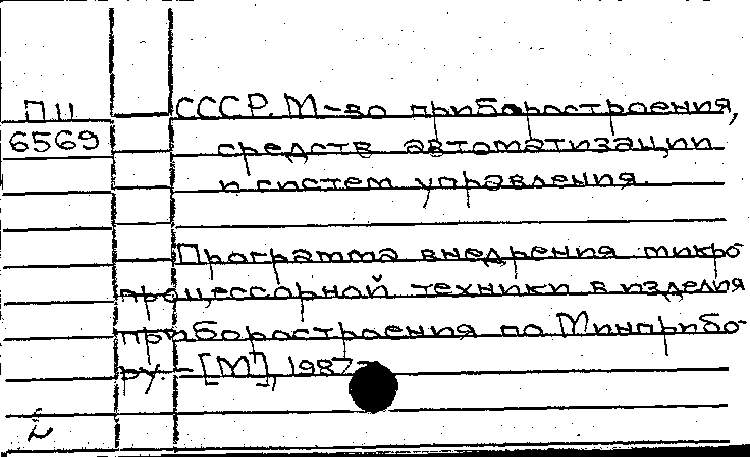 П 11
6569
СССР. М-во приборостроения,
средств автоматизации
и систем управления.
Программа внедрения микро
процессорной техники в изделия
приборостроения по Минприбо-
ру. – [М], 1987 –